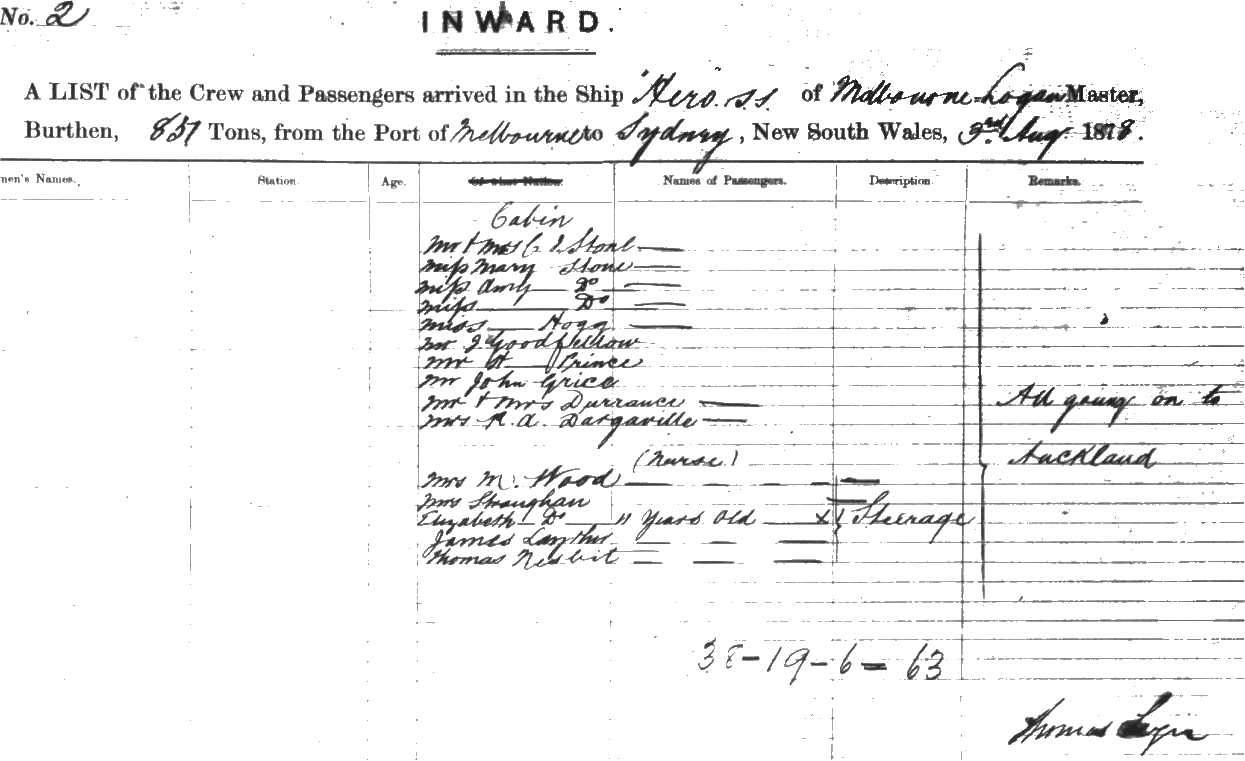 No. 2
INWARD.
A LIST of the Crew and Passengers arrived in the Ship Hero s.s. of Melbourne Logan Master,
Burthen, 857 Tons, from the Port of Melbourne to Sydney, New South Wales, 3rd Aug 1878.
men's Names. Station. Age. Of what Nation. Names of Passengers. Description. Remarks.
Cabin
Mr & Mrs C J Stone
Miss Mary Stone
Miss Amy Do
Miss Do
Miss Hogg
Mr J Goodfellow
Mr H Prince
Mr John Grice
Mr & Mrs Durrance
Mrs R. A. Dargaville
All going on to
Auckland
(Nurse)
Mrs M. Wood
Mrs Straughan
Elizabeth Do 11 Years Old x Steerage
James
Thomas Nesbit
38-19-6=63
Thomas